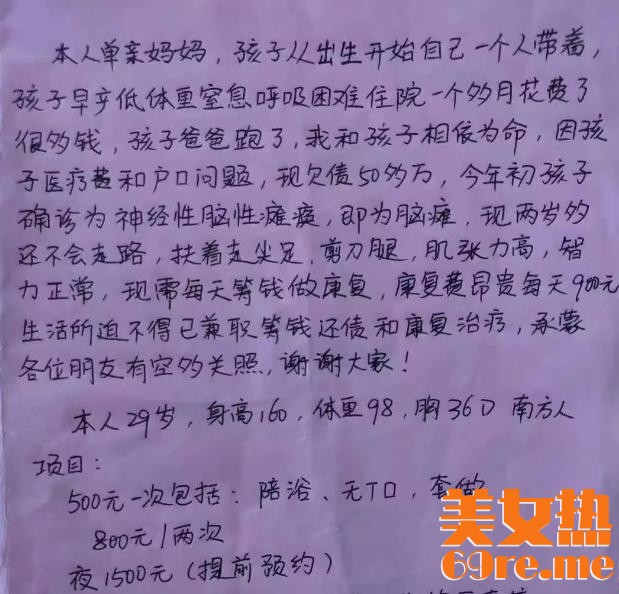 本人单亲妈妈，孩子从出生开始自己一个人带着，
孩子早产低体重窒息呼吸困难住院一个多月花费了
很多钱，孩子爸爸跑了，我和孩子相依为命，因孩
子医疗费和户口问题，现欠债50多万，今年初孩子
确诊为神经性脑性瘫痪，即为脑瘫，现两岁多
还不会走路，扶着走尖足，剪刀腿，肌张力高，智
力正常，现需每天筹钱做康复，康复费昂贵每天900元
生活所迫不得已兼职筹钱还债和康复治疗，承蒙
各位朋友有空多关照，谢谢大家！
本人29岁，身高160，体重98，胸36D 南方人
项目：
500元一次包括：陪浴、无TD，套做
800元/两次
夜1500元（提前预约）
美女热
69re.me